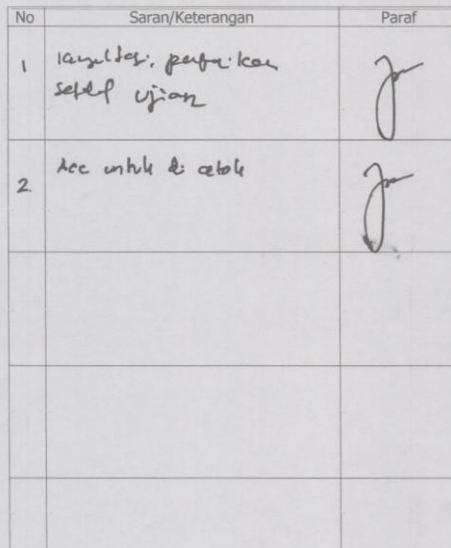 No Saran/Keterangan Paraf
1 konsultasi, perbaikan
setelah ujian
2. Acc untuk di cetak